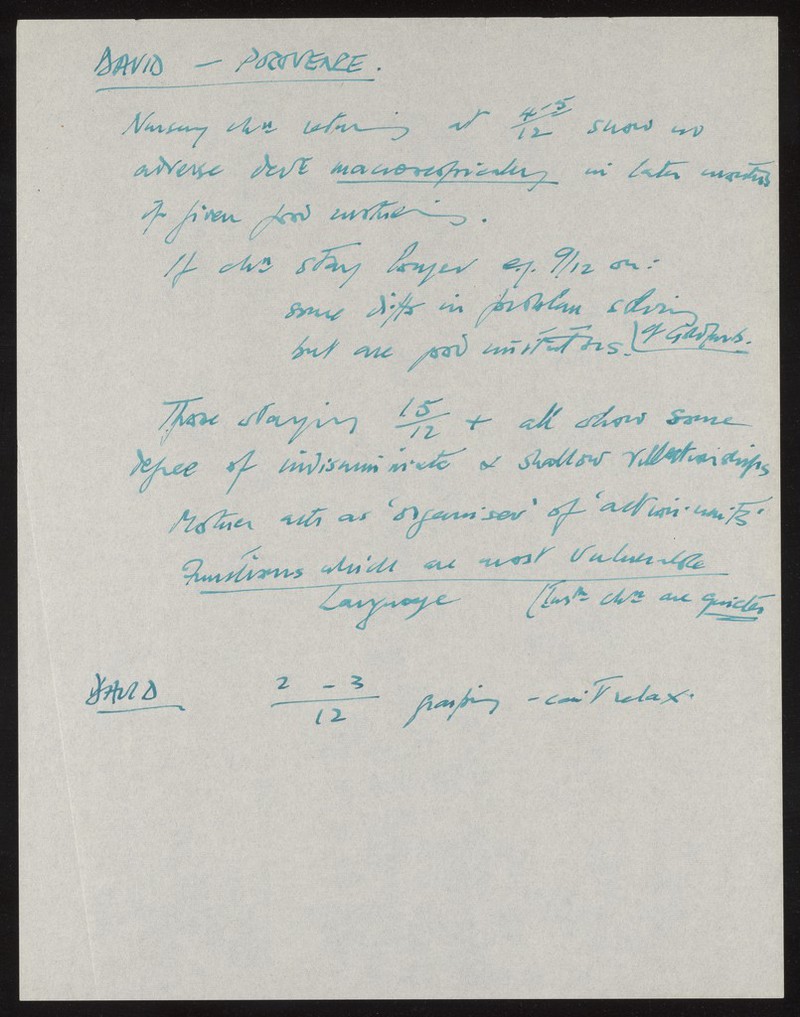 DAVID — PROVENCE.
Nursery chn returning at 4-5/12 show no
adverse devt macroscopically in later months
if given good mothering.
If chn stay longer e.g. 9/12 on:
some diffs in problem solving
but are good imitators.
Those staying 15/12 + all show some
degree of indiscriminate & shallow relationships
Mother acts as 'organiser' of 'action-units'
Functions which are most vulnerable
Language (Instn chn are quieter
DAVID 2-3/12 grasping - can't relax.